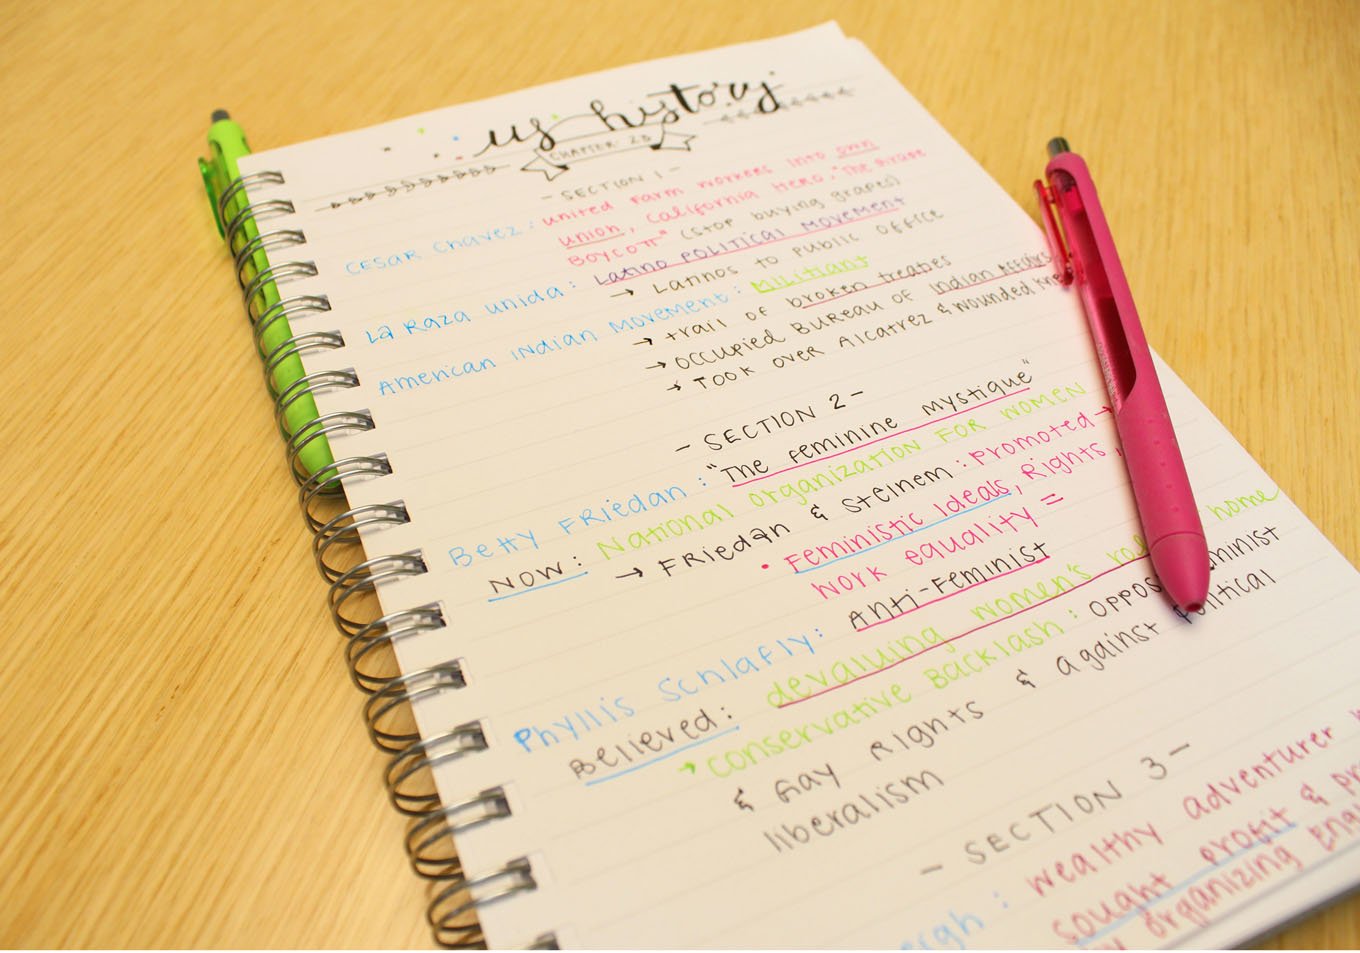 us history
CHAPTER 23
- SECTION 1 -
Cesar Chavez: united farm workers into own
union, California Hero, "The Grape
Boycott" (stop buying grapes)
La Raza unida: Latino political movement
→ Latinos to public office
American Indian Movement: Militiant
→ trail of broken treaties
→ occupied Bureau of Indian Affairs
→ Took over Alcatrez & wounded knee
- SECTION 2 -
Betty Friedan: "The feminine mystique"
NOW: National organization for women
→ Friedan & Steinem: promoted →
• Feministic Ideals, Rights,
work equality =
Phyllis Schlafly: Anti-Feminist
Believed: devaluing women's home
→ conservative Backlash:
& Gay Rights & against political
liberalism
- SECTION 3 -
: wealthy adventurer
sought profit &
organizing